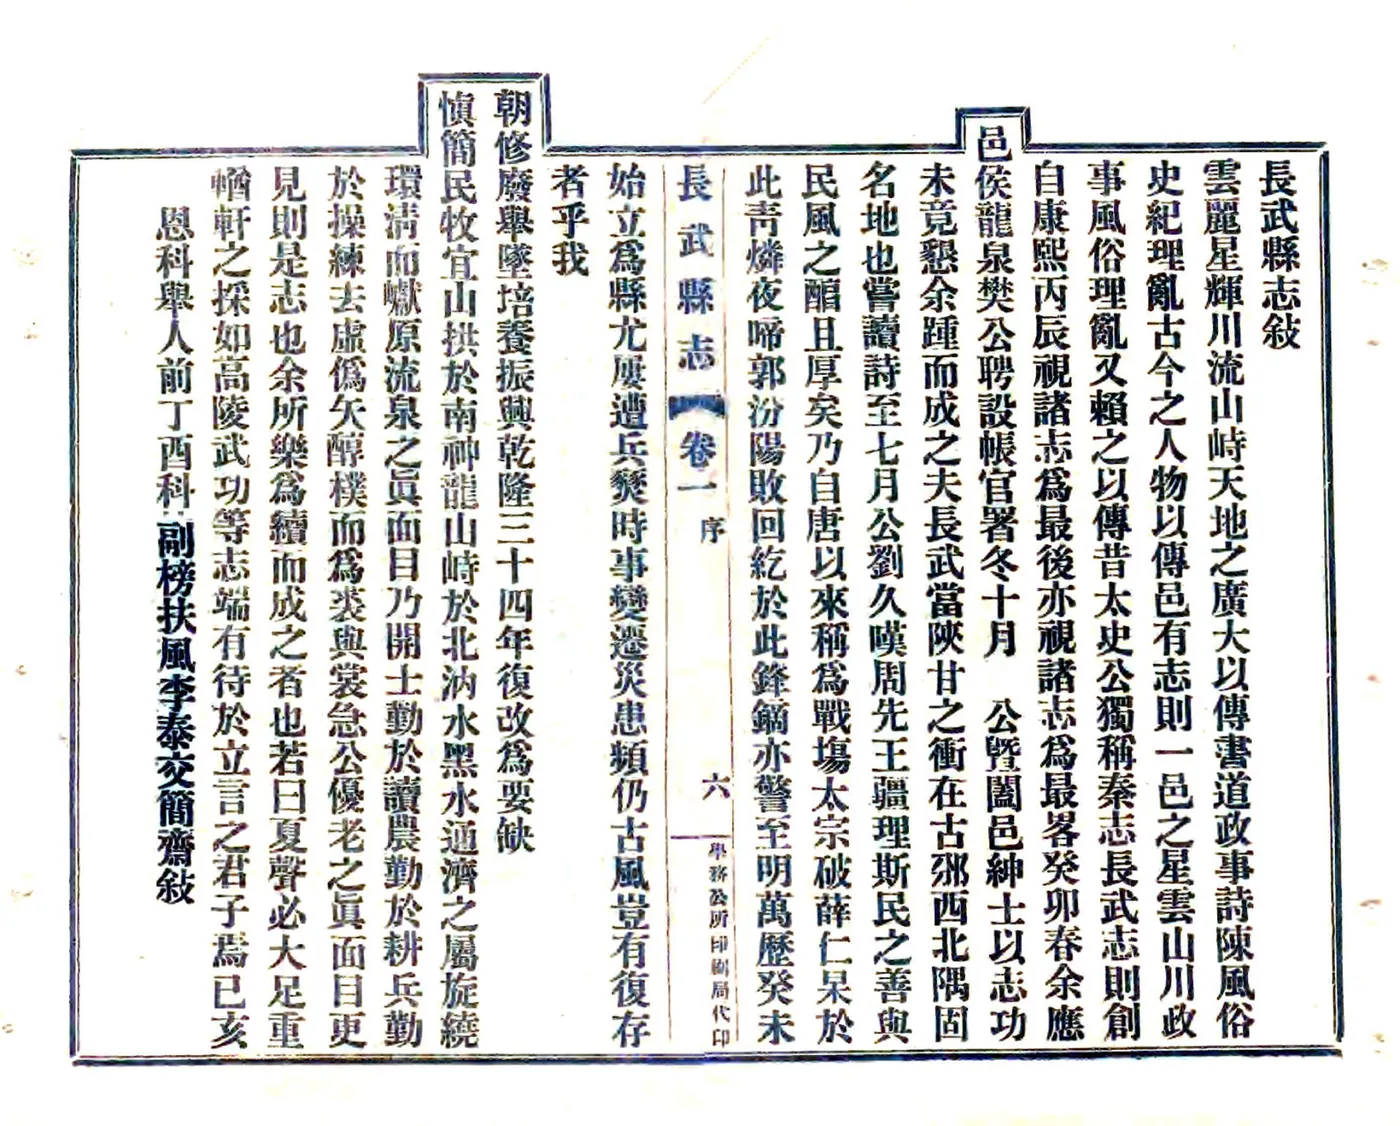 長武縣志敍
雲麗星輝川流山峙天地之廣大以傳書道政事詩陳風俗
史紀理亂古今之人物以傳邑有志則一邑之星雲山川政
事風俗理亂又賴之以傳昔太史公獨稱秦志長武志則創
自康熙丙辰視諸志爲最後亦視諸志爲最畧癸卯春余應
邑侯龍泉樊公聘設帳官署冬十月 公暨闔邑紳士以志功
未竟懇余踵而成之夫長武當陝甘之衝在古邠西北隅固
名地也嘗讀詩至七月公劉久嘆周先王疆理斯民之善與
民風之醕且厚矣乃自唐以來稱爲戰塲太宗破薛仁杲於
此靑燐夜啼郭汾陽敗回紇於此鋒鏑亦警至明萬歷癸未
長武縣志 卷一 序 六 學務公所印刷局代印
始立爲縣尤屢遭兵燹時事變遷災患頻仍古風豈有復存
者乎我
朝修廢舉墜培養振興乾隆三十四年復改爲要缺
愼簡民牧宜山拱於南神龍山峙於北汭水黑水通濟之屬旋繞
環淸而巘原流泉之眞面目乃開士勤於讀農勤於耕兵勤
於操練去虛僞矢醇樸而爲裘與裳急公優老之眞面目更
見則是志也余所樂爲續而成之者也若曰夏聲必大足重
輶軒之採如高陵武功等志端有待於立言之君子焉已亥
恩科舉人前丁酉科副榜扶風李泰交簡齋敍